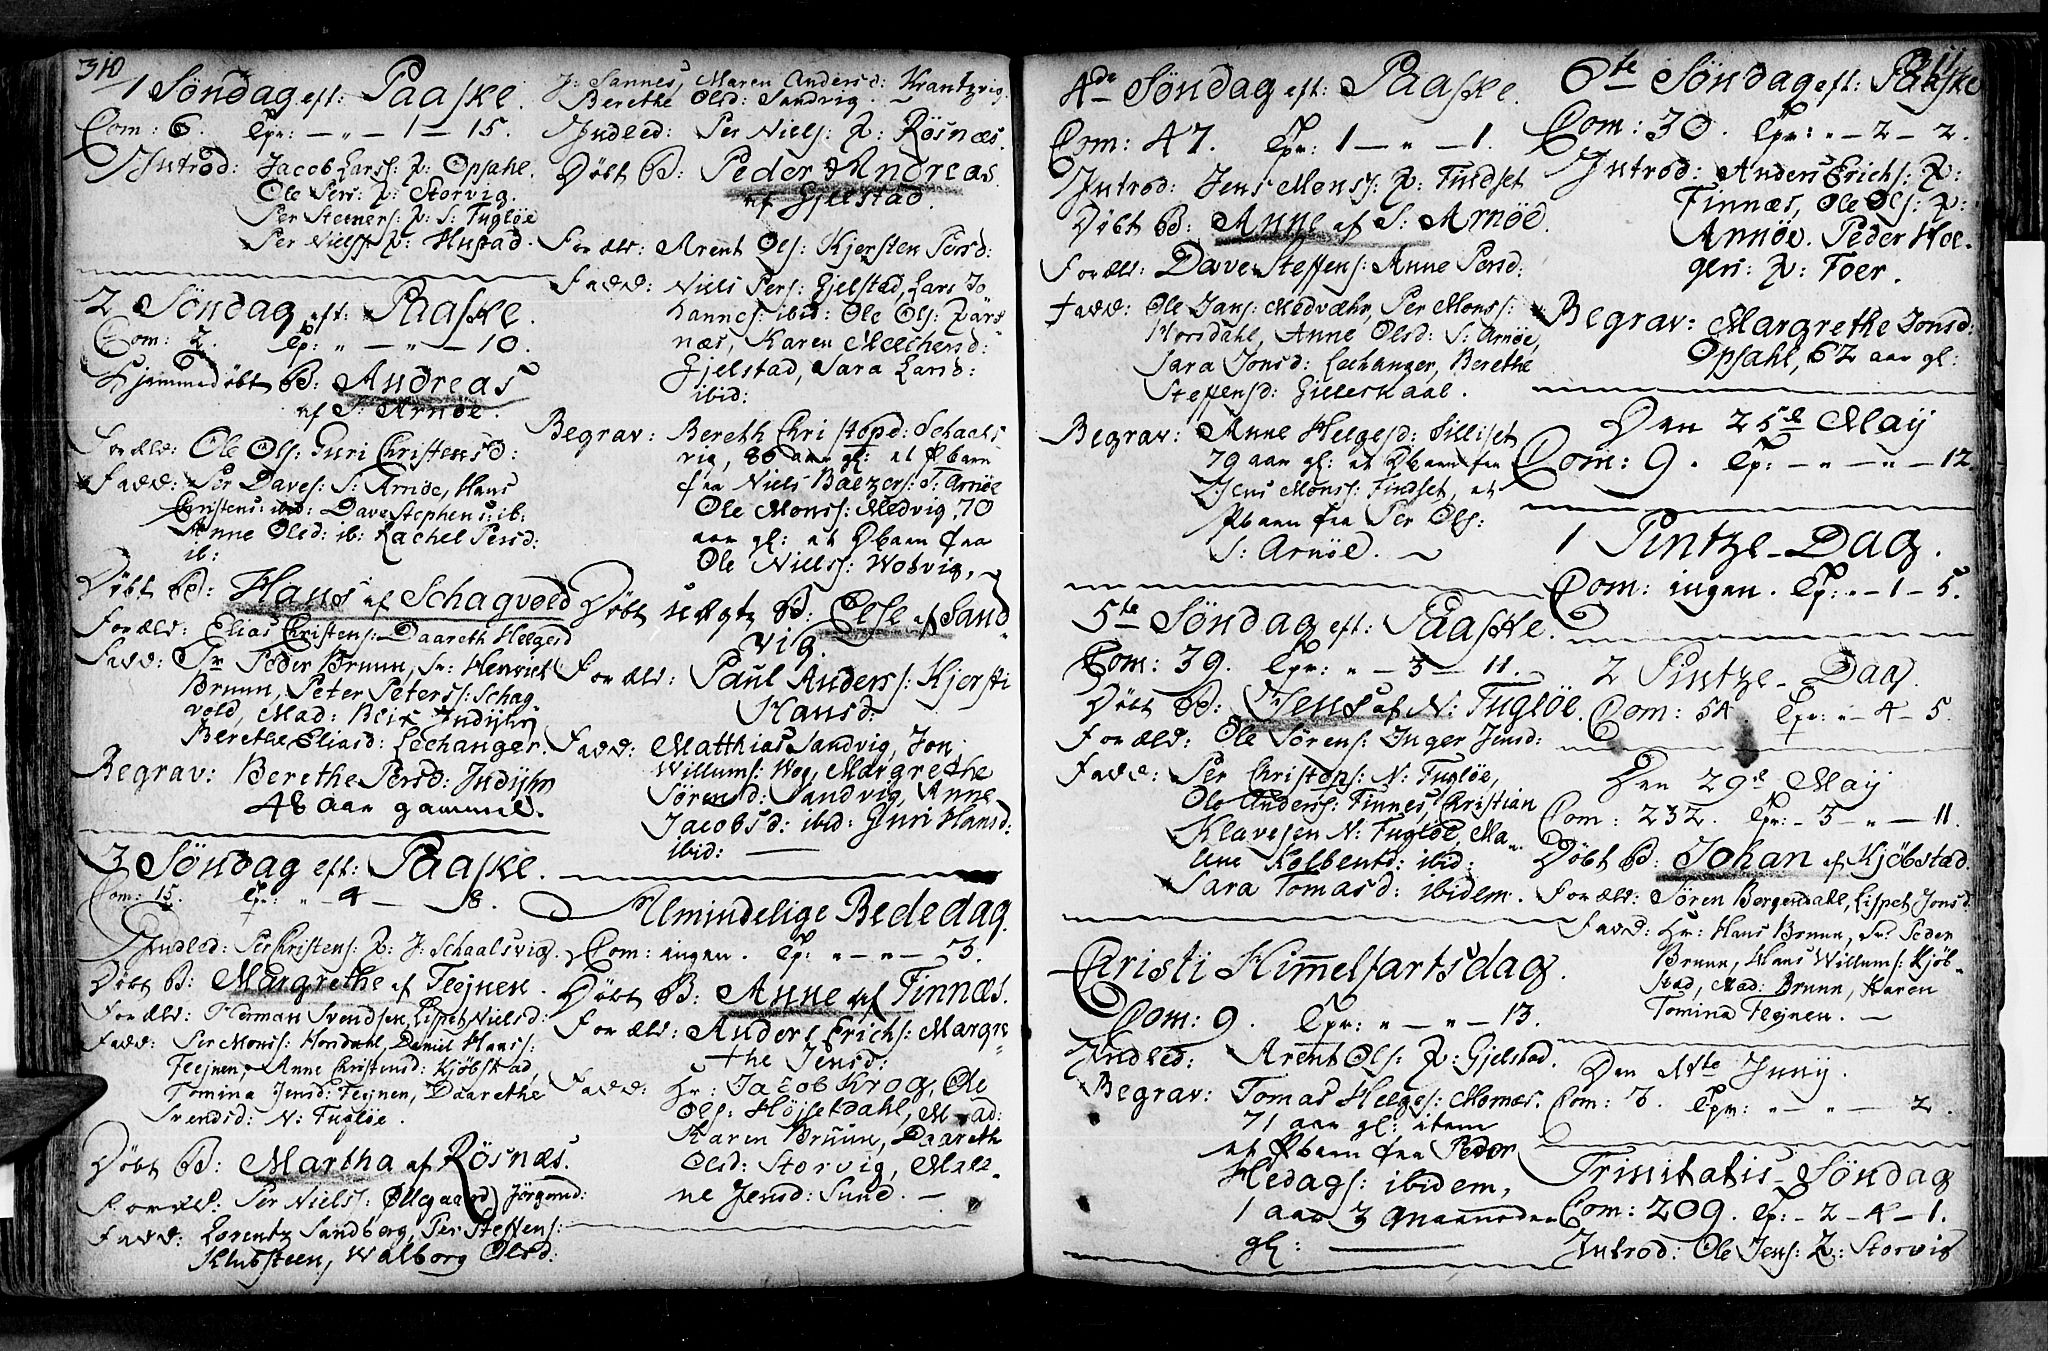 310
1 Søndag eft: Paaske.
Com: 6. Cpr: — „ — 1 — 15.
Introd: Jacob Larss: Q: Opsahl.
Ole Pers: Q: Storvig.
Per Steeners: Q: S: Fugløe
Per Nielss Q: Hustad.
2 Søndag eft: Paaske.
Com: 2. Cp: „ — „ — 10.
Hjemmedøbt B: Andreas
af S: Arnøe.
Foræld: Ole Ols: Guri Christensd:
Fadd: Per Daves: S: Arnøe, Hans
Christens: ibid: Dave Stephens: ib:
Anne Olsd: ib: Rachel Persd:
ib:
Døbt B: Hans af Schagvold
Foræld: Elias Christens: Daareth Helgesd
Fadd: Sr Peder Bruun, Sr: Henrich
Bruun, Peter Peters: Schag-
vold, Mad: Blix Indijhr,
Berethe Eliasd: Lechanger.
Begrav: Berethe Persd: Indijhr
48 aar gammel.
3 Søndag eft: Paaske.
Com: 15. Cpr: „ — 4 — 8.
Indled: Per Christens: Q: J: Schaalsvig.
Døbt B: Margrethe af Flejnen.
Foræld: Herman Svendsen, Lispet Nielsd:
Fadd: Per Monss: Horsdahl, Daniel Hanss:
Flejnen, Anne Christensd: Kjøbstad,
Tomina Jensd: Flejnen, Daarethe
Svendsd: N: Fugløe.
Døbt B: Martha af Røsnæs.
Foræld: Per Niels: Ølgaard Jørgensd:
Fadd: Lorentz Sandberg, Per Steffens:
Klubsteen, Walborg Olsd:
J: Sannes, Maren Andersd: Krantzvig
Berethe Olsd: Sandvig.
Indled: Per Niels: Q: Røsnæs.
Døbt B: Peder Andreas
af Gjelstad.
Foræld: Arent Ols: Kjersten Persd:
Fadd: Niels Pers: Gjelstad, Lars Jo
hannes: ibid: Ole Ols:
næs, Karen Melchersd:
Gjelstad, Sara Larsd:
ibid:
Begrav: Bereth Christopd: Schaals
vig, 80 aar gl: et Pbarn
fra Niels Baltzers: S: Arnøe
Ole Mons: Medvig, 70
aar gl: et Dbarn fraa
Ole Nilss: Wotvig,
Døbt uægte B: Else af Sand
vig.
Foræld: Paul Anders: Kjersti
Hansd:
Fadd: Matthias Sandvig, Jon
Willums: Wog, Margrethe
Sørensd: Sandvig, Anne
Jacobsd: ibid: Guri Hansd:
ibid:
Almindelige Bededag.
Com: ingen. Cp: „ — „ — 3.
Døbt B: Anne af Finnæs.
Foræld: Anders Erichs: Margre
the Jensd:
Fadd: Hr: Jacob Krog, Ole
Ols: Højsetdahl, Mad:
Karen Bruun, Daareth
Olsd: Storvig, Male
ne Jensd: Sund.
4de Søndag eft: Paaske.
Com: 47. Cpr: 1 — „ — 1.
Introd: Jens Mons: Q: Findset
Døbt B: Anne af S: Arnøe.
Foræld: Dave Steffens: Anne Persd:
Fadd: Ole Jans: Medvæhr, Per Mons:
Horsdahl, Anne Olsd: S: Arnøe,
Sara Jonsd: Lechanger, Berethe
Steffensd: Gilleskaal.
Begrav: Anne Helgesd: Silliset
79 aar gl: et Dbarn fra
Jens Monss: Findset, et
Pbarn fra Per Ols:
S: Arnøe.
5te Søndag eft: Paaske.
Com: 39. Cpr: „ — 3 — 11.
Døbt B: Jens af N: Fugløe.
Foræld: Ole Sørens: Inger Jensd:
Fadd: Per Christops: N: Fugløe,
Ole Anders: Finnes, Christian
Klavesen N: Fugløe, Ma-
lene Kolbentd: ibid:
Sara Tomasd: ibidem.
Christi Himmelfartsdag.
Com: 9. Cpr: „ — „ — 13.
Indled: Arent Ols: Q: Gjelstad.
Begrav: Tomas Helges: Momæs.
71 aar gl: item
et Pbarn fra Peder
Hedags: ibidem,
1 aar 3 maaneder
gl:
311
6te Søndag eft: Paaske
Com: 30. Cpr: „ — 2 — 2.
Introd: Anders Erichs: Q:
Finnæs, Ole Ols: Q:
Annøe. Peder Hol-
gers: Q: Foer.
Begrav: Margrethe Jonsd:
Opsahl, 62 aar gl:
Den 25de Maij
Com: 9. Cp: — „ — „ — 12.
1 Pintze-Dag.
Com: ingen. Cp: „ — 1 — 5.
2 Pintze-Dag.
Com: 54 Cpr: „ — 4 — 5.
Den 29de Maij
Com: 232. Cpr: — 3 — „ — 11.
Døbt B: Johan af Kjøbstad.
Foræld: Søren Borgendahl, Lispet Jonsd:
Fadd: Hr: Hans Bruun, Sr: Peder
Bruun, Hans Willums: Kjøb-
stad, Mad: Bruun, Karen
Tomina Flejnen.
Den 1ste Junij.
Com: 3. Cpr: „ — „ — 2.
Trinitatis-Søndag
Com: 209. Cp: — 2 — 4 — 1.
Introd: Ole Jens: Q: Storvig